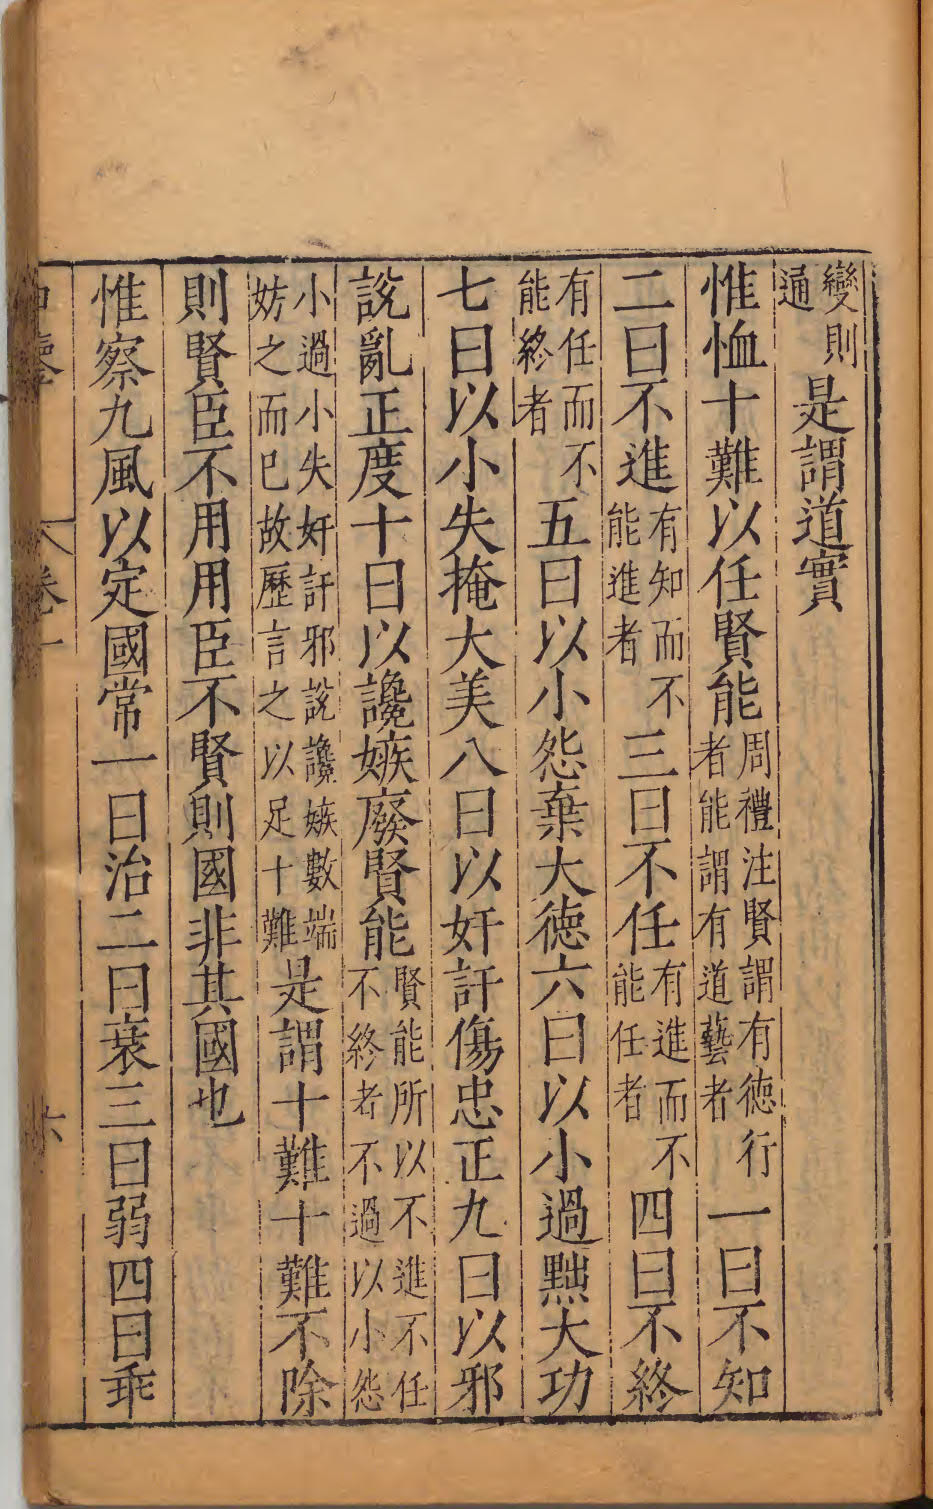 變則通是謂道實
惟恤十難以任賢能周禮注賢謂有德行者能謂有道藝者一曰不知
二曰不進有知而不能進者三曰不任有進而不能任者四曰不終
有任而不能終者五曰以小怨棄大德六曰以小過黜大功
七曰以小失掩大美八曰以奸訐傷忠正九曰以邪
說亂正度十曰以讒嫉廢賢能賢能所以不進不任不終者不過以小怨
小過小失奸訐邪說讒嫉數端妨之而已故歷言之以足十難是謂十難十難不除
則賢臣不用用臣不賢則國非其國也
惟察九風以定國常一曰治二曰衰三曰弱四曰乖
卷一
六